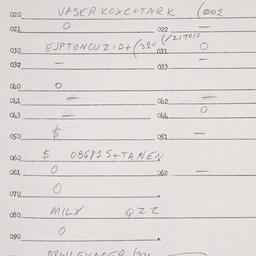 020 VASERKOXC+TARK (002
021 0 022 —
030 EJPTONCUZID+(320 (/217010
031 0
032 — 033 —
040 0
041 — 042 —
043 — 044 0
050 $ 051 —
060 $ OBGP15+TANEN
061 0 062 —
070 0
080 MILX QZZ
090 0